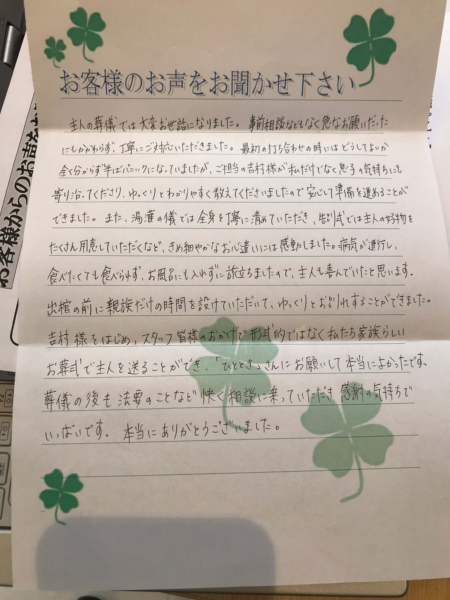 お客様のお声をお聞かせ下さい
主人の葬儀では大変お世話になりました。事前相談などもなく急なお願いだった
にもかかわらず、丁寧にご対応いただきました。最初の打ち合わせの時にはどうしてよいか
全く分からず半ばパニックになっていましたが、ご担当の吉村様が私だけでなく息子の気持ちにも
寄り沿ってくださり、ゆっくりとわかりやすく教えてくださいましたので安心して準備を進めることが
できました。また、湯灌の儀では全身を丁寧に清めていただき、告別式では主人の好物を
たくさん用意していただくなど、きめ細やかなお心遣いには感動しました。病気が進行し、
食べたくても食べられず、お風呂にも入れずに旅立ちましたので、主人も喜んでいたと思います。
出棺の前に親族だけの時間を設けていただいて、ゆっくりとお別れすることができました。
吉村様をはじめ、スタッフ皆様のおかげで形式的ではなく私たち家族らしい
お葬式で主人を送ることができ、「ひととき」さんにお願いして本当によかったです。
葬儀の後も法要のことなど快く相談に乗っていただき感謝の気持ちで
いっぱいです。本当にありがとうございました。
お客様からのお声を